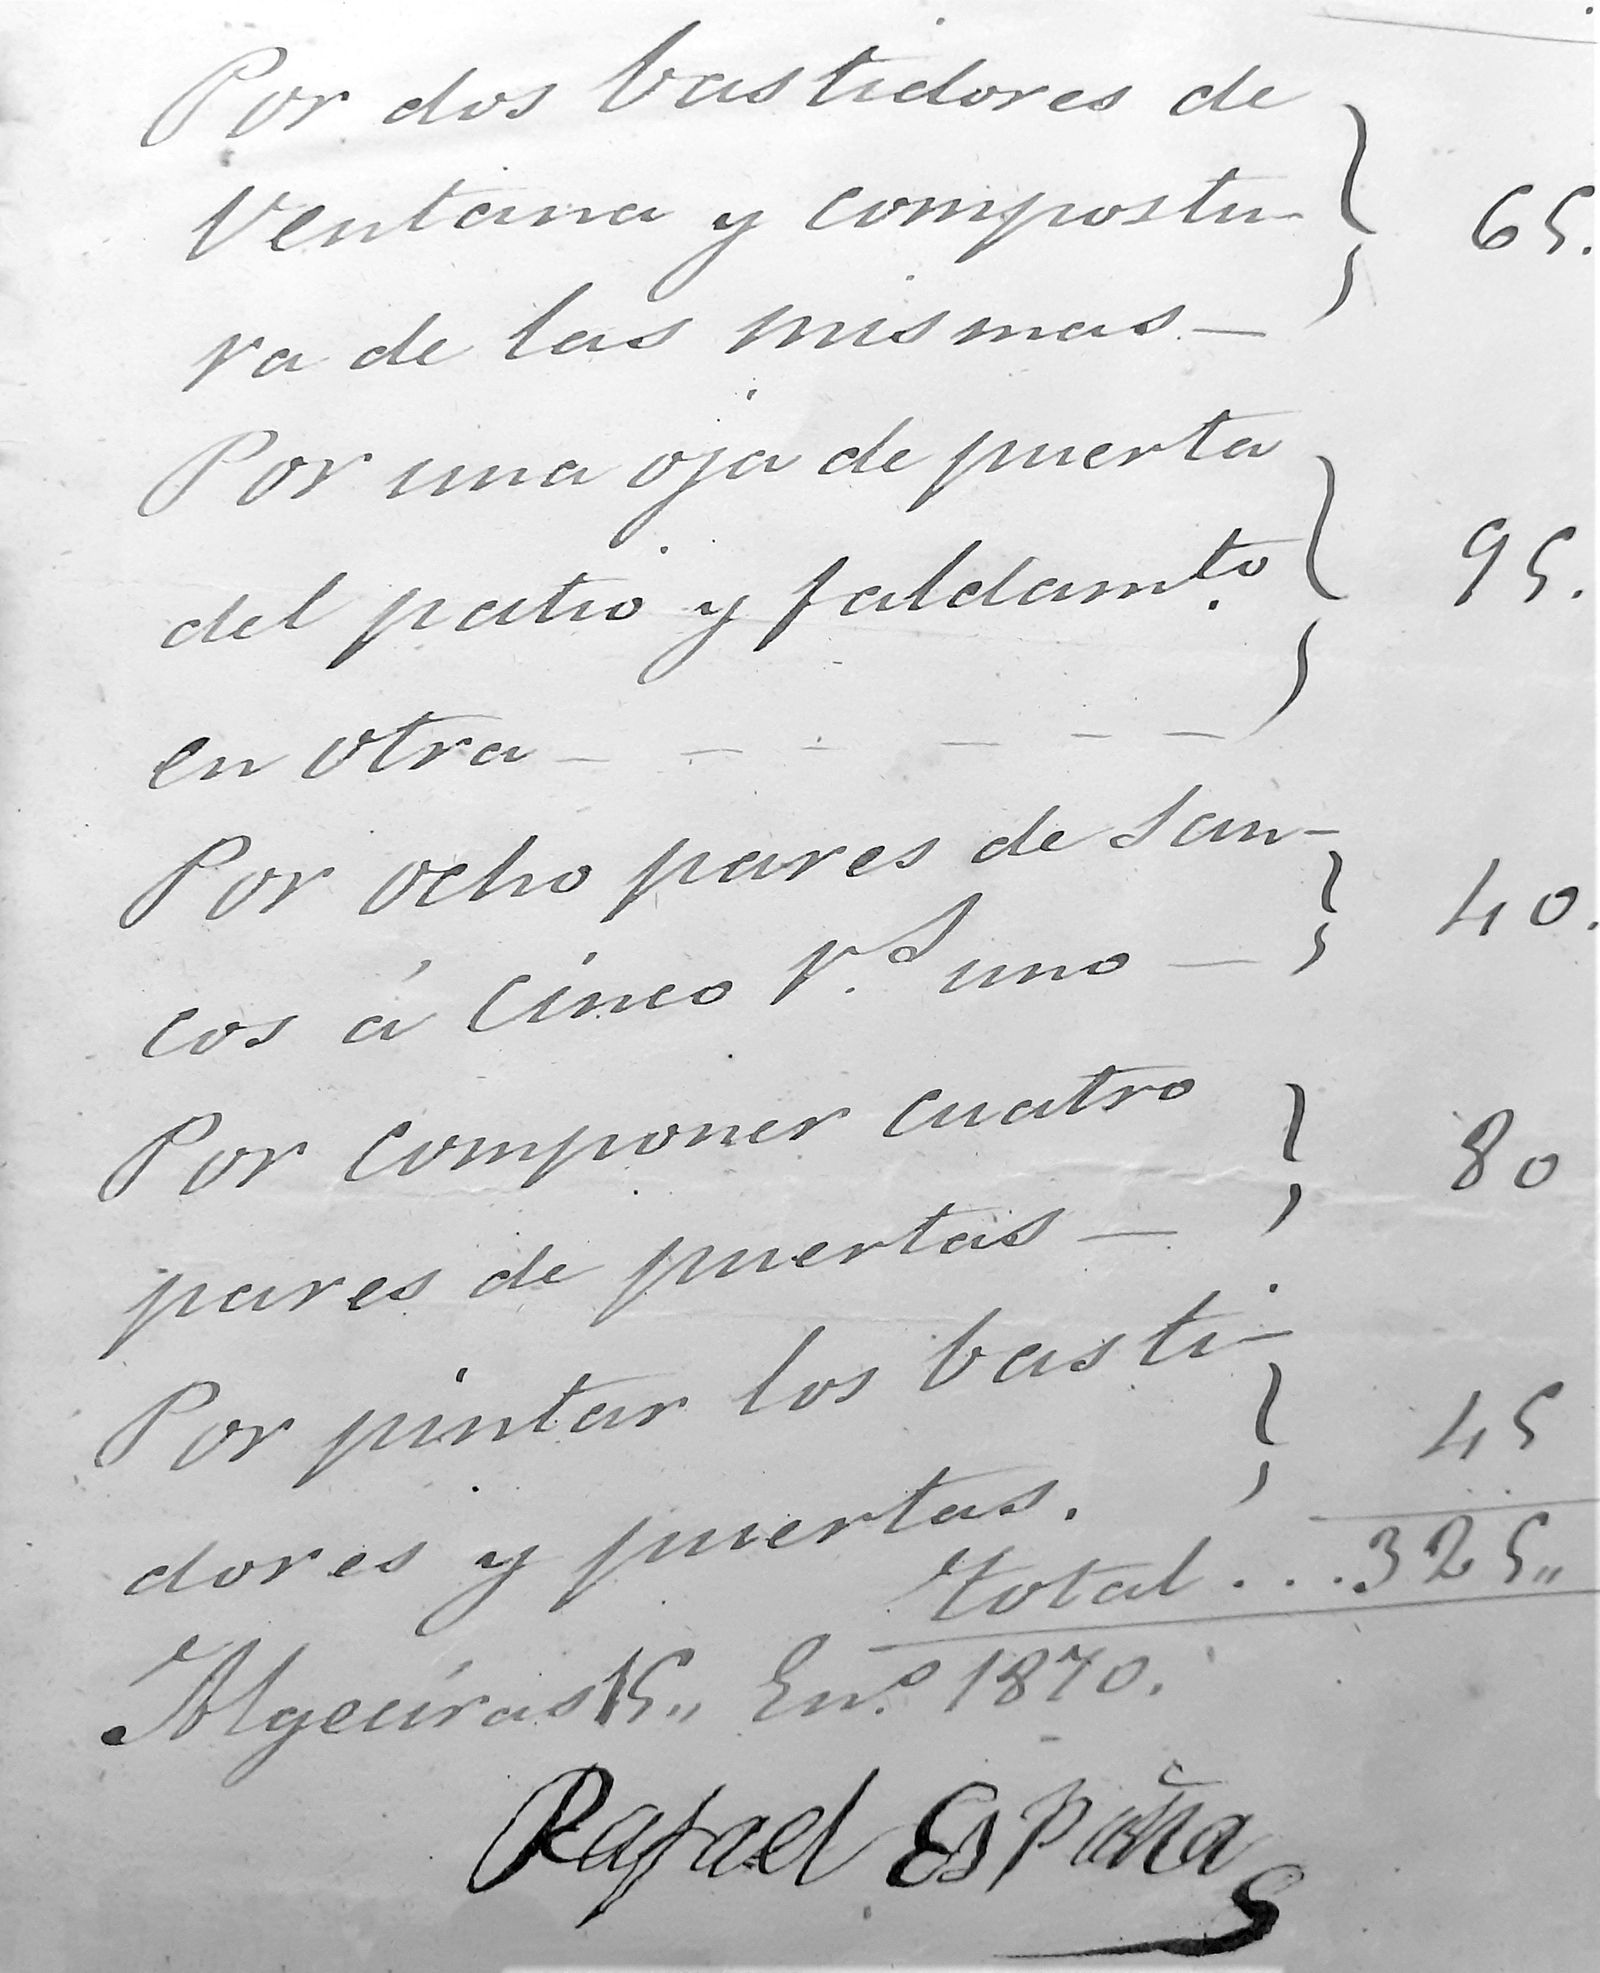 Por dos bastidores de
Ventana y compostu- 65.
ra de las mismas —
Por una oja de puerta
del patio y faldamto. 95.
en otra — — — — — —
Por ocho pares de San-
cos á cinco rs. uno — 40.
Por componer cuatro
pares de puertas — 80
Por pintar los basti-
dores y puertas. 45
total . . . 325„
Algeciras 15„ Eno. 1870.
Rafael España